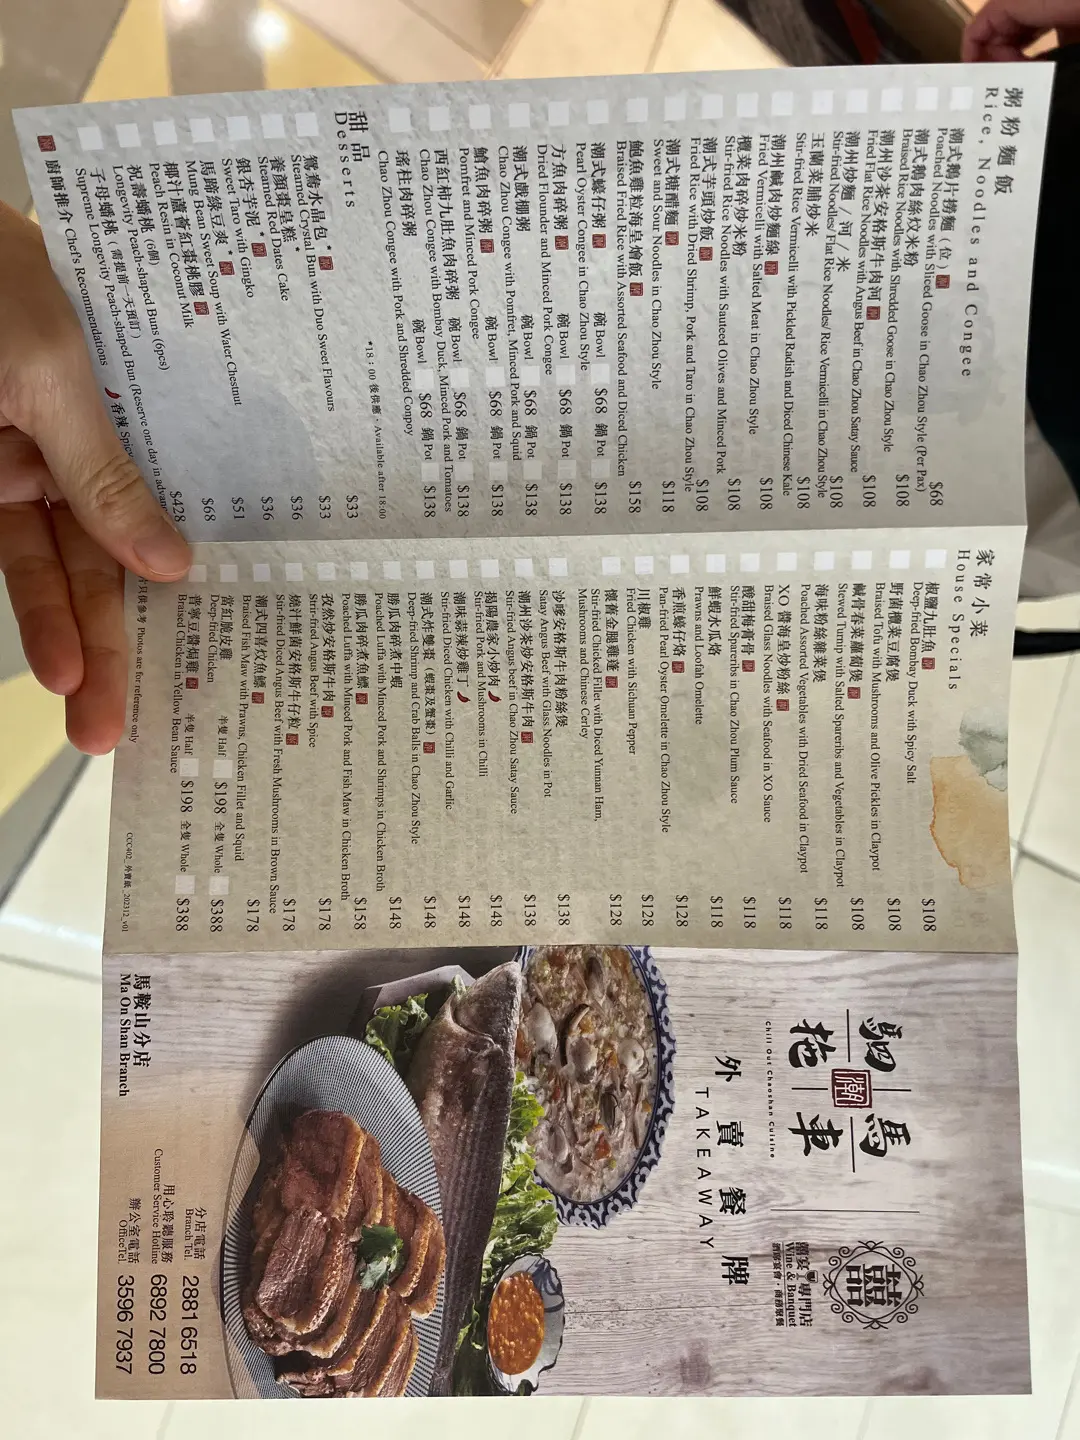 粥粉麵飯
Rice, Noodles and Congee
潮式鵝片撈麵（位） $68
Poached Noodles with Sliced Goose in Chao Zhou Style (Per Pax)
潮式鵝肉絲炆米粉 $108
Braised Rice Noodles with Shredded Goose in Chao Zhou Style
潮州沙茶安格斯牛肉河 $108
Fried Flat Rice Noodles with Angus Beef in Chao Zhou Satay Sauce
潮州炒麵 / 河 / 米 $108
Stir-fried Noodles/ Flat Rice Noodles/ Rice Vermicelli in Chao Zhou Style
玉蘭菜脯炒米 $108
Stir-fried Rice Vermicelli with Pickled Radish and Diced Chinese Kale
潮州鹹肉炒麵線 $108
Fried Vermicelli with Salted Meat in Chao Zhou Style
欖菜肉碎炒米粉 $108
Stir-fried Rice Noodles with Sauteed Olives and Minced Pork
潮式芋頭炒飯 $108
Fried Rice with Dried Shrimp, Pork and Taro in Chao Zhou Style
潮式糖醋麵 $118
Sweet and Sour Noodles in Chao Zhou Style
鮑魚雞粒海皇燴飯 $158
Braised Fried Rice with Assorted Seafood and Diced Chicken
潮式蠔仔粥 碗 Bowl $68 鍋 Pot $138
Pearl Oyster Congee in Chao Zhou Style
方魚肉碎粥 碗 Bowl $68 鍋 Pot $138
Dried Flounder and Minced Pork Congee
潮式戲棚粥 碗 Bowl $68 鍋 Pot $138
Chao Zhou Congee with Pomfret, Minced Pork and Squid
鱠魚肉碎粥 碗 Bowl $68 鍋 Pot $138
Pomfret and Minced Pork Congee
西紅柿九肚魚肉碎粥 碗 Bowl $68 鍋 Pot $138
Chao Zhou Congee with Bombay Duck, Minced Pork and Tomatoes
瑤柱肉碎粥 碗 Bowl $68 鍋 Pot $138
Chao Zhou Congee with Pork and Shredded Conpoy
甜品
Desserts
*18:00 後供應，Available after 18:00
鴛鴦水晶包* $33
Steamed Crystal Bun with Duo Sweet Flavours
養顏棗皇糕* $33
Steamed Red Dates Cake
銀杏芋泥* $36
Sweet Taro with Gingko
馬蹄綠豆爽* $36
Mung Bean Sweet Soup with Water Chestnut
椰汁蘆薈紅棗桃膠 $51
Peach Resin in Coconut Milk
祝壽蟠桃（6個） $68
Longevity Peach-shaped Buns (6pcs)
子母蟠桃（需提前一天預訂） $428
Supreme Longevity Peach-shaped Bun (Reserve one day in advan
廚師推介 Chef's Recommendations 香辣 Spic
家常小菜
House Specials
椒鹽九肚魚 $108
Deep-fried Bombay Duck with Spicy Salt
野菌欖菜豆腐煲 $108
Braised Tofu with Mushrooms and Olive Pickles in Claypot
鹹骨春菜蘿蔔煲 $108
Stewed Turnip with Salted Spareribs and Vegetables in Claypot
海味粉絲雜菜煲 $118
Poached Assorted Vegetables with Dried Seafood in Claypot
XO 醬海皇炒粉絲 $118
Braised Glass Noodles with Seafood in XO Sauce
酸甜梅膏骨 $118
Stir-fried Spareribs in Chao Zhou Plum Sauce
鮮蝦水瓜烙 $118
Prawns and Loofah Omelette
香煎蠔仔烙 $128
Pan-fried Pearl Oyster Omelette in Chao Zhou Style
川椒雞 $128
Fried Chicken with Sichuan Pepper
懷舊金腿雞蓬 $128
Stir-fried Chicked Fillet with Diced Yunnan Ham,
Mushrooms and Chinese Cerley
沙嗲安格斯牛肉粉絲煲 $138
Satay Angus Beef with Glass Noodles in Pot
潮州沙茶炒安格斯牛肉 $138
Stir-fried Angus Beef in Chao Zhou Satay Sauce
揭陽農家小炒肉 $148
Stir-fried Pork and Mushrooms in Chilli
潮味蒜辣炒雞丁 $148
Stir-fried Diced Chicken with Chilli and Garlic
潮式炸雙棗（蝦棗及蟹棗） $148
Deep-fried Shrimp and Crab Balls in Chao Zhou Style
勝瓜肉碎煮中蝦 $148
Poached Luffa with Minced Pork and Shrimps in Chicken Broth
勝瓜肉碎煮魚鰾 $158
Poached Luffa with Minced Pork and Fish Maw in Chicken Broth
孜然炒安格斯牛肉 $178
Strir-fried Angus Beef with Spice
燒汁鮮菌安格斯牛仔粒 $178
Stir-fried Diced Angus Beef with Fresh Mushrooms in Brown Sauce
潮式四喜炆魚鰾 $178
Braised Fish Maw with Prawns, Chicken Fillet and Squid
當紅脆皮雞 半隻 Half $198 全隻 Whole $388
Deep-fried Chicken
普寧豆醬焗雞 半隻 Half $198 全隻 Whole $388
Braised Chicken in Yellow Bean Sauce
片只供參考 Photos are for reference only
CCC402_外賣紙_202312_v01
駟馬拖車
潮
Chill Out Chaoshan Cuisine
囍
潮宴專門店
Wine & Banquet
酒席宴會．商務聚餐
外賣餐牌
TAKEAWAY
馬鞍山分店
Ma On Shan Branch
分店電話
Branch Tel. 2881 6518
用心聆聽服務
Customer Service Hotline 6892 7800
辦公室電話
Office Tel. 3596 7937